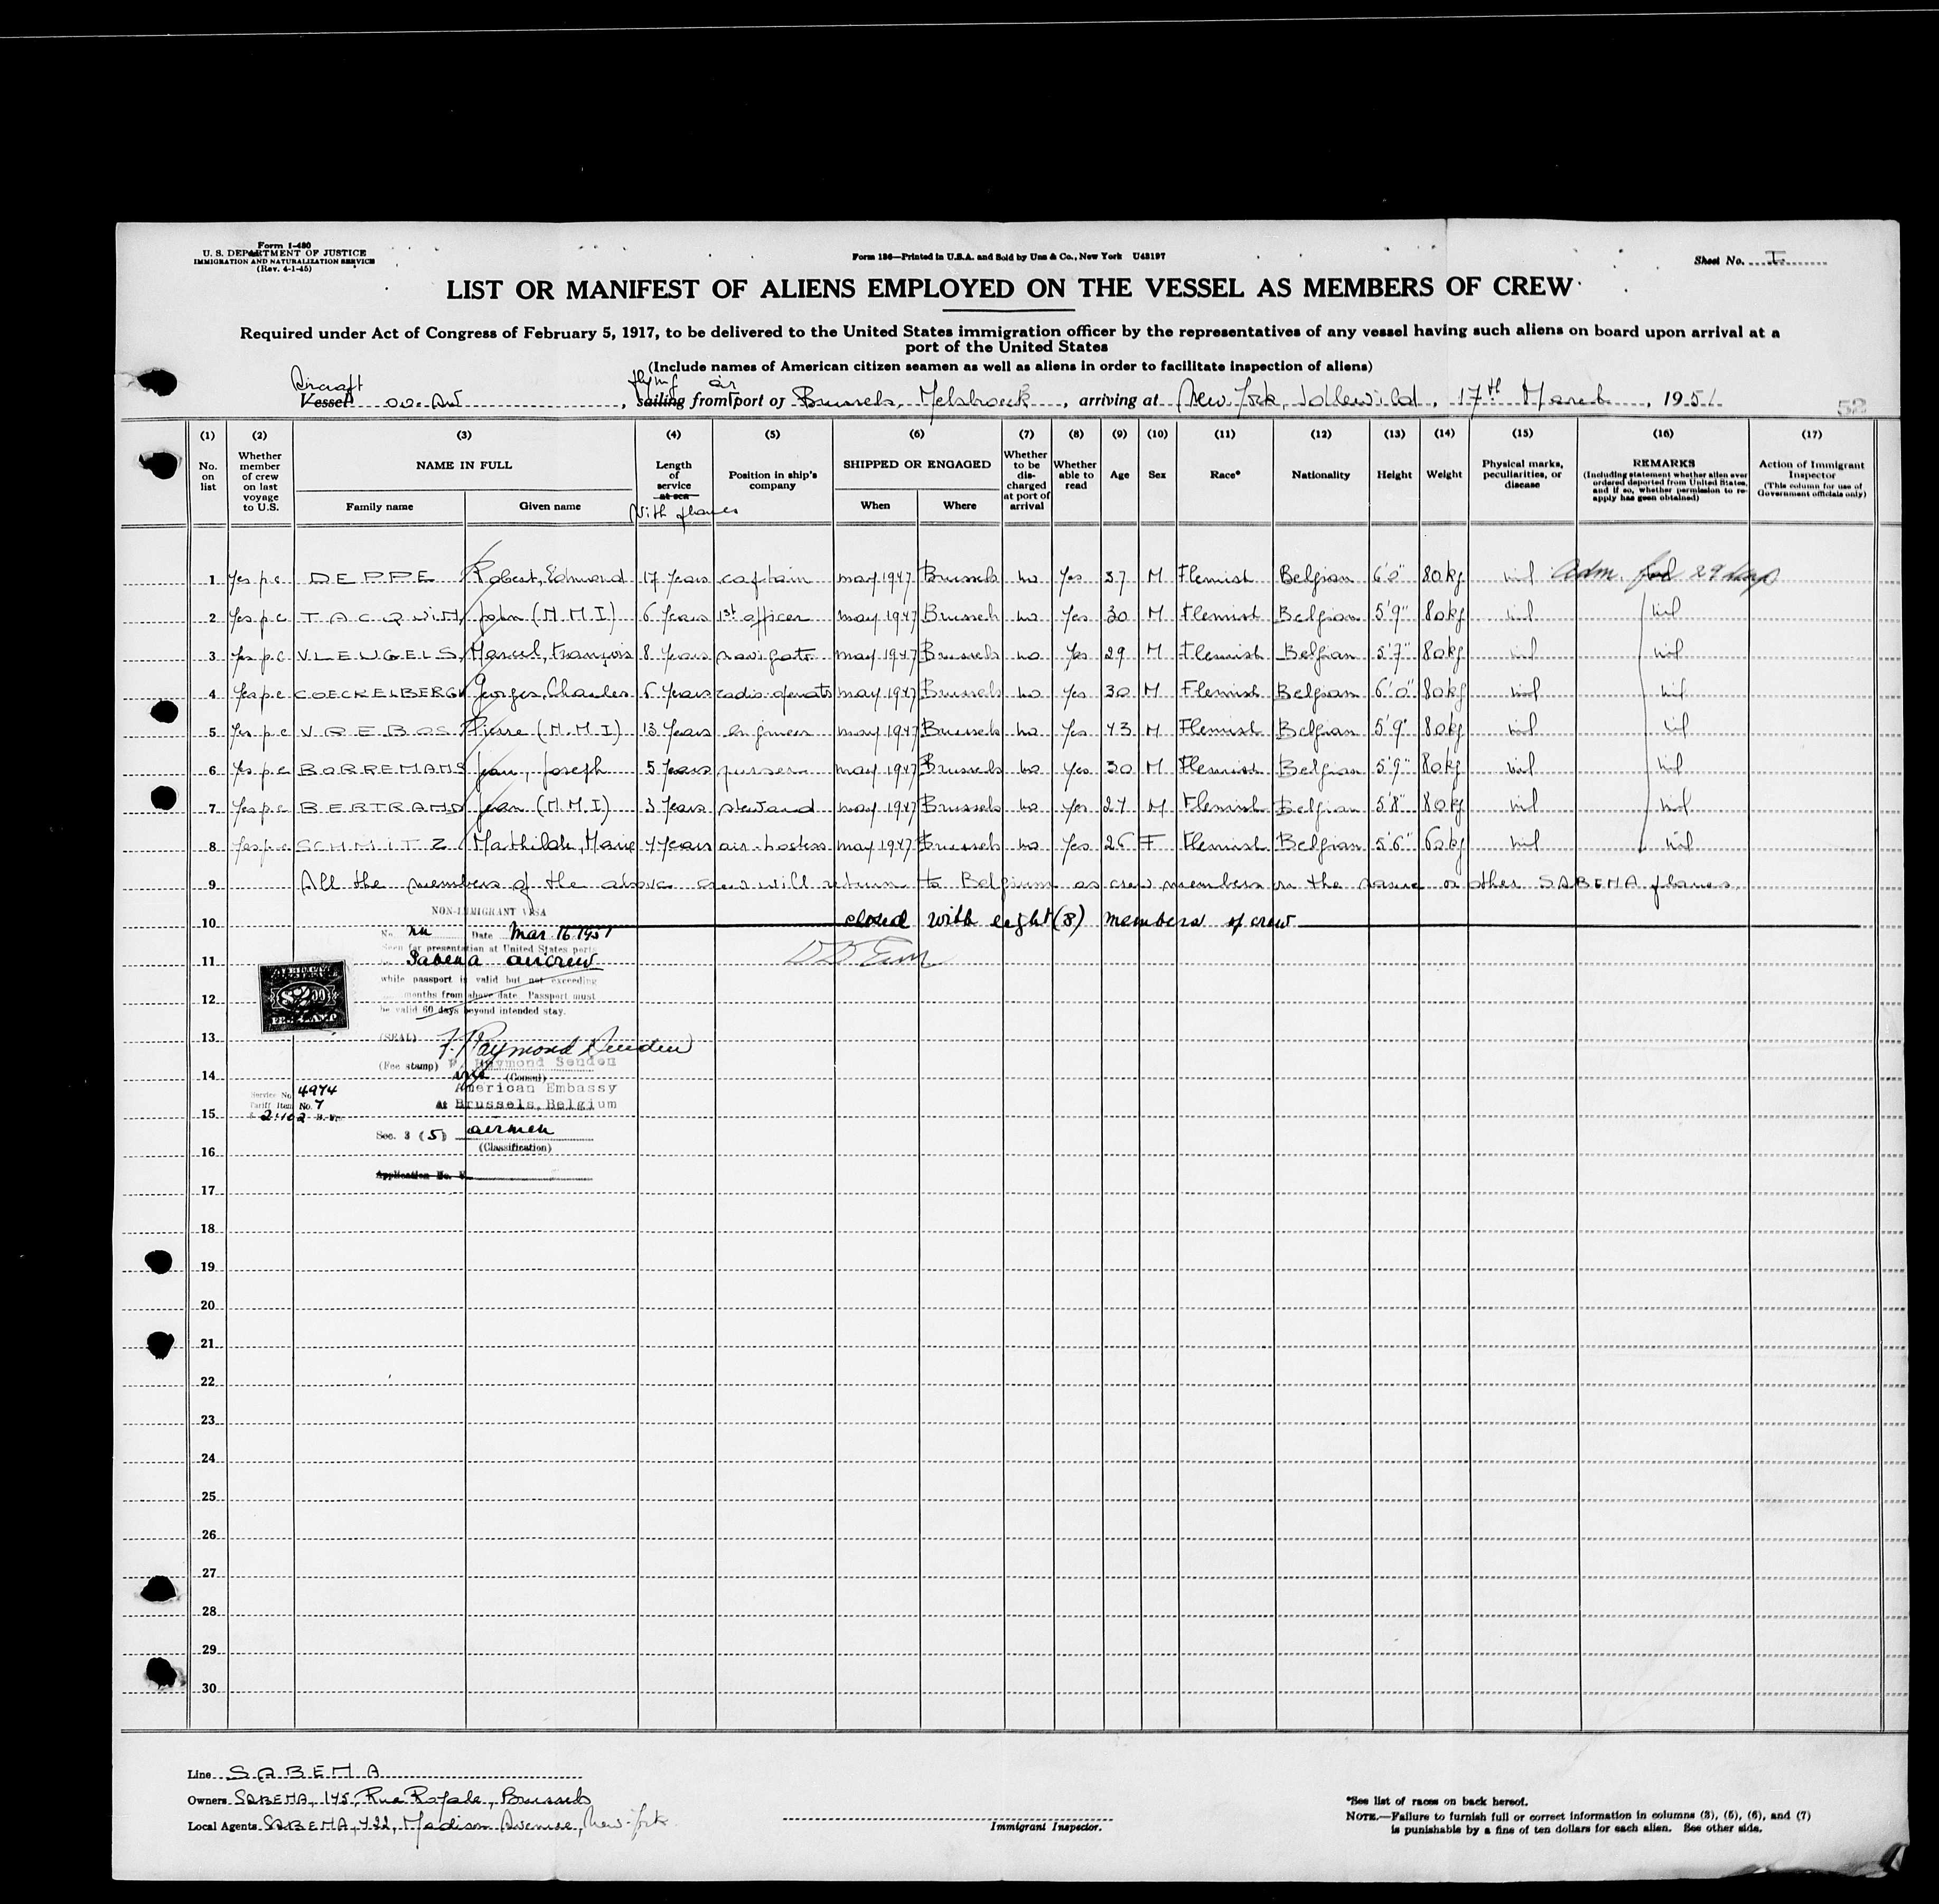 Form I-480
U. S. DEPARTMENT OF JUSTICE
IMMIGRATION AND NATURALIZATION SERVICE
(Rev. 4-1-45)
Form 136—Printed in U.S.A. and Sold by Unz & Co., New York U43197
Sheet No. I
LIST OR MANIFEST OF ALIENS EMPLOYED ON THE VESSEL AS MEMBERS OF CREW
Required under Act of Congress of February 5, 1917, to be delivered to the United States immigration officer by the representatives of any vessel having such aliens on board upon arrival at a
port of the United States
(Include names of American citizen seamen as well as aliens in order to facilitate inspection of aliens)
Aircraft flying air
Vessel, sailing from port of Brussels, Melsbroeck, arriving at New York, Idlewild, 17th March, 1951
52
(1) (2) (3) (4) (5) (6) (7) (8) (9) (10) (11) (12) (13) (14) (15) (16) (17)
No. on list
Whether member of crew on last voyage to U.S.
NAME IN FULL
Family name
Given name
Length of service at sea
With planes
Position in ship's company
SHIPPED OR ENGAGED
When
Where
Whether to be discharged at port of arrival
Whether able to read
Age
Sex
Race*
Nationality
Height
Weight
Physical marks, peculiarities, or disease
REMARKS
(Including statement whether alien ever ordered deported from United States, and if so, whether permission to reapply has been obtained)
Action of Immigrant Inspector
(This column for use of Government officials only)
1 Yes p.c DEPPE Robert, Edmond 17 Years captain may 1947 Brussels no Yes 37 M Flemish Belgian 6'0" 80kg nil adm. 29 days
2 Yes p.c TACQUIN John (N.M.I) 6 Years 1st officer may 1947 Brussels no Yes 30 M Flemish Belgian 5'9" 80kg nil nil
3 Yes p.c VLEUGELS Marcel, François 8 Years navigator may 1947 Brussels no Yes 29 M Flemish Belgian 5'7" 80kg nil nil
4 Yes p.c COECKELBERGH Georges, Charles 6 Years radio-operator may 1947 Brussels no Yes 30 M Flemish Belgian 6'0" 80kg nil nil
5 Yes p.c VREBOS Pierre (N.M.I) 13 Years engineer may 1947 Brussels no Yes 43 M Flemish Belgian 5'9" 80kg nil nil
6 Yes p.c BORREMANS Jean, Joseph 5 Years purser may 1947 Brussels no Yes 30 M Flemish Belgian 5'9" 80kg nil nil
7 Yes p.c BERTRAND Jean (N.M.I) 3 Years steward may 1947 Brussels no Yes 27 M Flemish Belgian 5'8" 80kg nil nil
8 Yes p.c SCHMITZ Mathilde, Marie 4 Years air-hostess may 1947 Brussels no Yes 26 F Flemish Belgian 5'6" 60kg nil nil
9 All the members of the above crew will return to Belgium as crew members on the same or other SABENA planes.
NON-IMMIGRANT VISA
10 closed with eight (8) members of crew
No. Date Mar 16 1951
Seen for presentation at United States ports
11 Sabena aircrew
while passport is valid but not exceeding
$2.00
12 months from above date. Passport must
be valid 60 days beyond intended stay.
13
(SEAL) F. Raymond Senden
(Fee stamp) F. Raymond Senden
14 vice (Consul)
Service No. 4974 American Embassy
Tariff Item No. 7 At Brussels, Belgium
15
Sec. 3 (5) airmen
16 (Classification)
Application No. V
17
18
19
20
21
22
23
24
25
26
27
28
29
30
Line SABENA
Owners SABENA, 145, Rue Royale, Brussels
Local Agents SABENA, 422, Madison Avenue, New-York
Immigrant Inspector.
*See list of races on back hereof.
NOTE.—Failure to furnish full or correct information in columns (3), (5), (6), and (7)
is punishable by a fine of ten dollars for each alien. See other side.